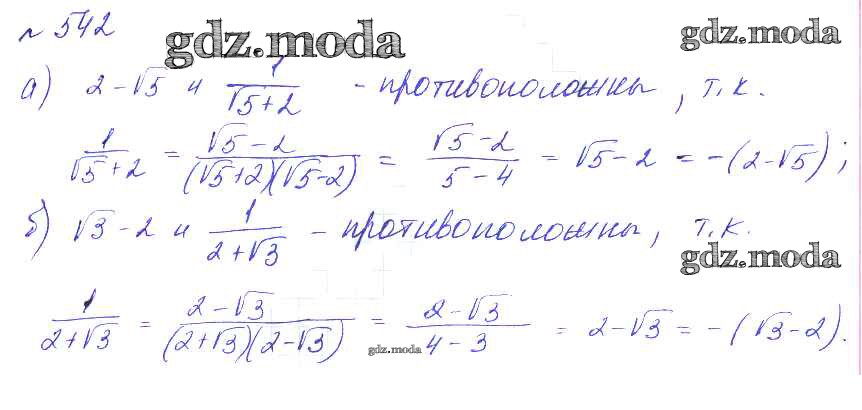 № 542
gdz.moda
gdz.moda
а) 2 - √5 и 1/(√5 + 2) - противоположны, т.к.
1/(√5 + 2) = (√5 - 2)/((√5+2)(√5-2)) = (√5 - 2)/(5 - 4) = √5 - 2 = -(2 - √5);
б) √3 - 2 и 1/(2 + √3) - противоположны, т.к.
gdz.moda
1/(2 + √3) = (2 - √3)/((2+√3)(2-√3)) = (2 - √3)/(4 - 3) = 2 - √3 = -(√3 - 2).
gdz.moda